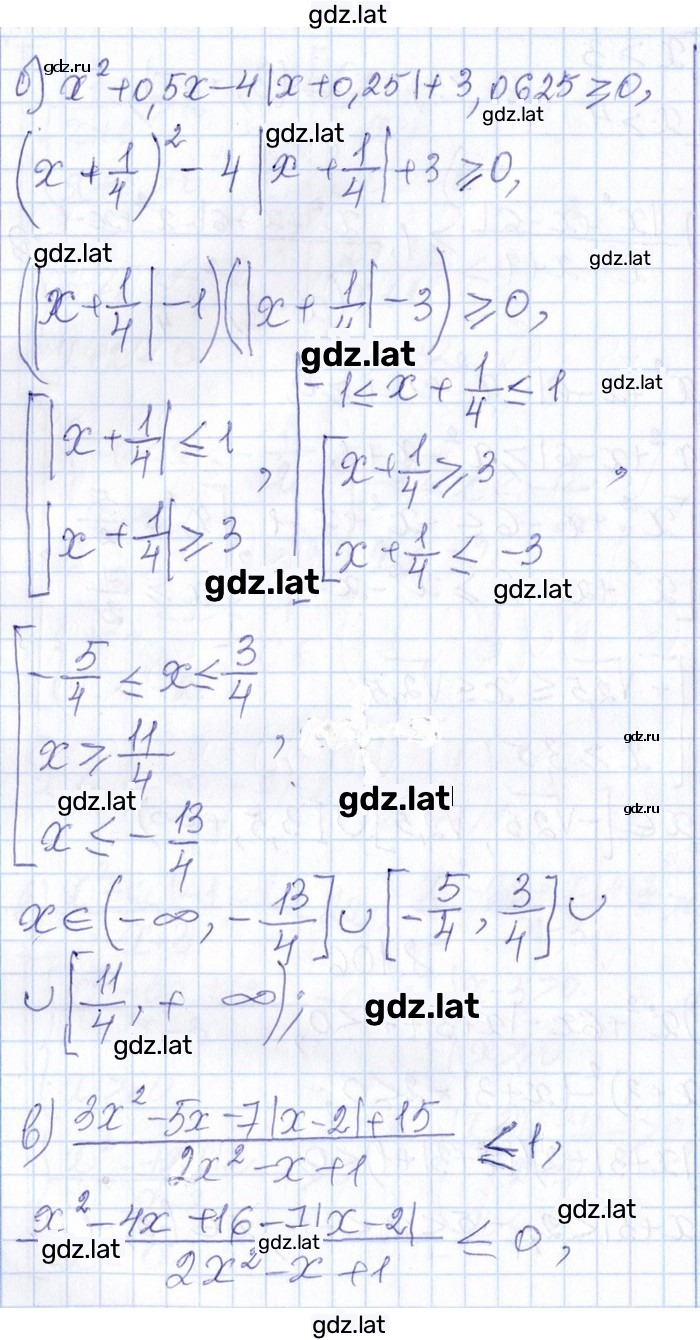 gdz.lat
gdz.ru
б) x² + 0,5x - 4|x + 0,25| + 3,0625 ≥ 0,
gdz.lat
gdz.lat
(x + 1/4)² - 4|x + 1/4| + 3 ≥ 0,
gdz.lat
gdz.lat
(|x + 1/4| - 1)(|x + 1/4| - 3) ≥ 0,
gdz.lat
gdz.lat
[ |x + 1/4| ≤ 1 , [ -1 ≤ x + 1/4 ≤ 1
|x + 1/4| ≥ 3 [ x + 1/4 ≥ 3 ,
x + 1/4 ≤ -3
gdz.lat
gdz.lat
[ -5/4 ≤ x ≤ 3/4
x ≥ 11/4 ,
gdz.ru
gdz.lat
gdz.lat
gdz.ru
x ≤ -13/4
x ∈ (-∞, -13/4] ∪ [-5/4, 3/4] ∪
∪ [11/4, + ∞);
gdz.lat
gdz.lat
в) (3x² - 5x - 7|x - 2| + 15)/(2x² - x + 1) ≤ 1,
gdz.lat
(x² - 4x + 16 - 7|x - 2|)/(2x² - x + 1) ≤ 0,
gdz.lat
gdz.lat
gdz.lat